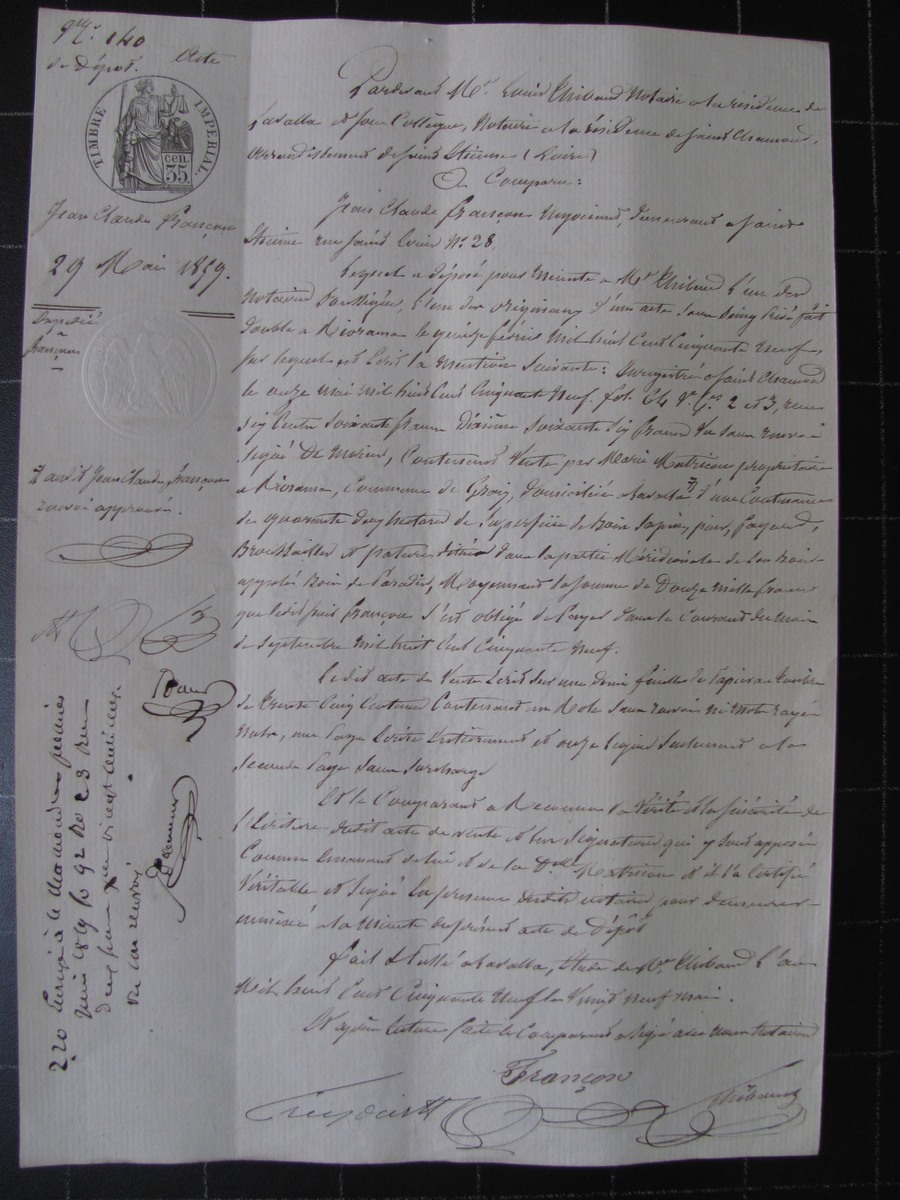 140
de Dépôt. Acte
TIMBRE IMPERIAL
35 cen.
Jean Claude Françon
29 Mai 1859.
Expédié
a
Françon
audit Jean Claude Françon
renvoi approuvé.
Pardevant Me. Louis Thibaud Notaire à la résidence de
Lavalla et son Collègue, Notaire à la résidence de Saint Chamond,
arrondissement de Saint Etienne (Loire)
A Comparu:
Jean Claude Françon Négociant, demeurant à Saint
Etienne rue Saint Louis No. 28.
Lequel a déposé pour minute à Me. Thibaud l'un des
Notaires soussignés, l'un des originaux d'une acte sous seing privé fait
double à Riorama le quinze février mil huit cent cinquante neuf,
sur lequel est écrit la mention suivante: Enregistré à Saint Chamond
le onze mai mil huit cent cinquante neuf. fol. 64 Vo. Ces. 2 et 3, reçu
six cents soixante francs dixième soixante six francs sans renvoi
signé De contenant Vente par Marie Matricon propriétaire
à Riorama, Commune de Graix, domiciliée à Lavalla d'une Contenance
de quarante deux hectares de superficie de bois sapin, pin, fayard,
Broussailles et patures situés dans la partie Méridionale de son bois
appelé Bois de Paradis, Moyennant la somme de Douze mille francs
que ledit sieur Françon s'est obligé de Payer dans le Courant du mois
de septembre mil huit cent cinquante neuf.
Ledit acte de Vente écrit sur une demi feuille de papier au timbre
de trente cinq centimes contenant un Role sans renvois ni mots rayés
nuls, une page écrite entièrement et onze lignes seulement à la
seconde page sans surcharge
Et le Comparant a Reconnu la Vérité et la sincérité de
l'Ecriture dudit acte de vente et les signatures qui y sont apposées
Comme émanant de lui et de la Dlle. Matricon et il l'a certifié
Véritable et signé en présence desdits notaires pour demeurer
annexé à la Minute du présent acte de Dépôt
Fait et Passé à Lavalla, Etude de Me. Thibaud l'an
Mil huit cent cinquante neuf le vingt neuf mai.
Et après lecture faite le Comparant a signé avec nous Notaires
Françon
Thibaud